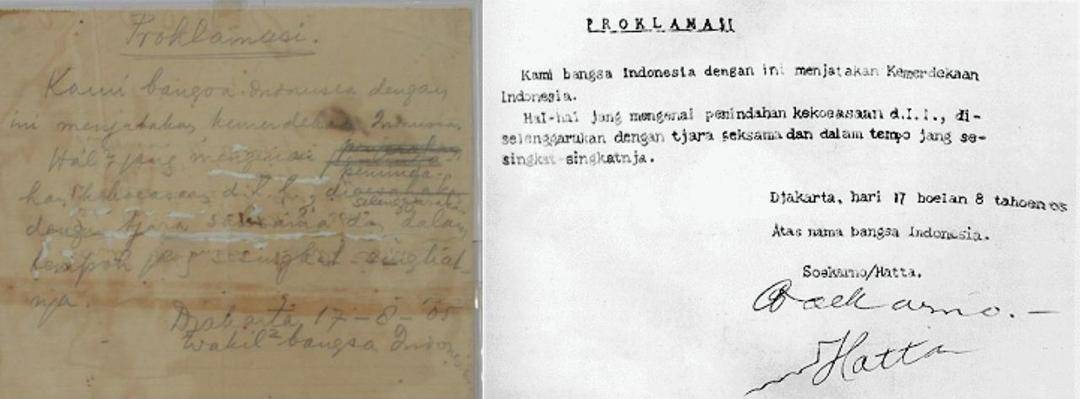 Proklamasi.
Kami bangsa Indonesia dengan
ini menjatakan kemerdekaan Indonesia.
Hal² jang mengenai
peminda-
han kekoeasaan d.l.l.,
diselenggarakan
dengan tjara seksama dan dalam
tempoh jang sesingkat-singkat-
nja.
Djakarta, 17-8-'05
Wakil² bangsa Indonesia
PROKLAMASI
Kami bangsa Indonesia dengan ini menjatakan Kemerdekaan
Indonesia.
Hal-hal jang mengenai pemindahan kekoeasaan d.l.l., di-
selenggarakan dengan tjara seksama dan dalam tempo jang se-
singkat-singkatnja.
Djakarta, hari 17 boelan 8 tahoen 05
Atas nama bangsa Indonesia.
Soekarno/Hatta.
Soekarno.
Hatta